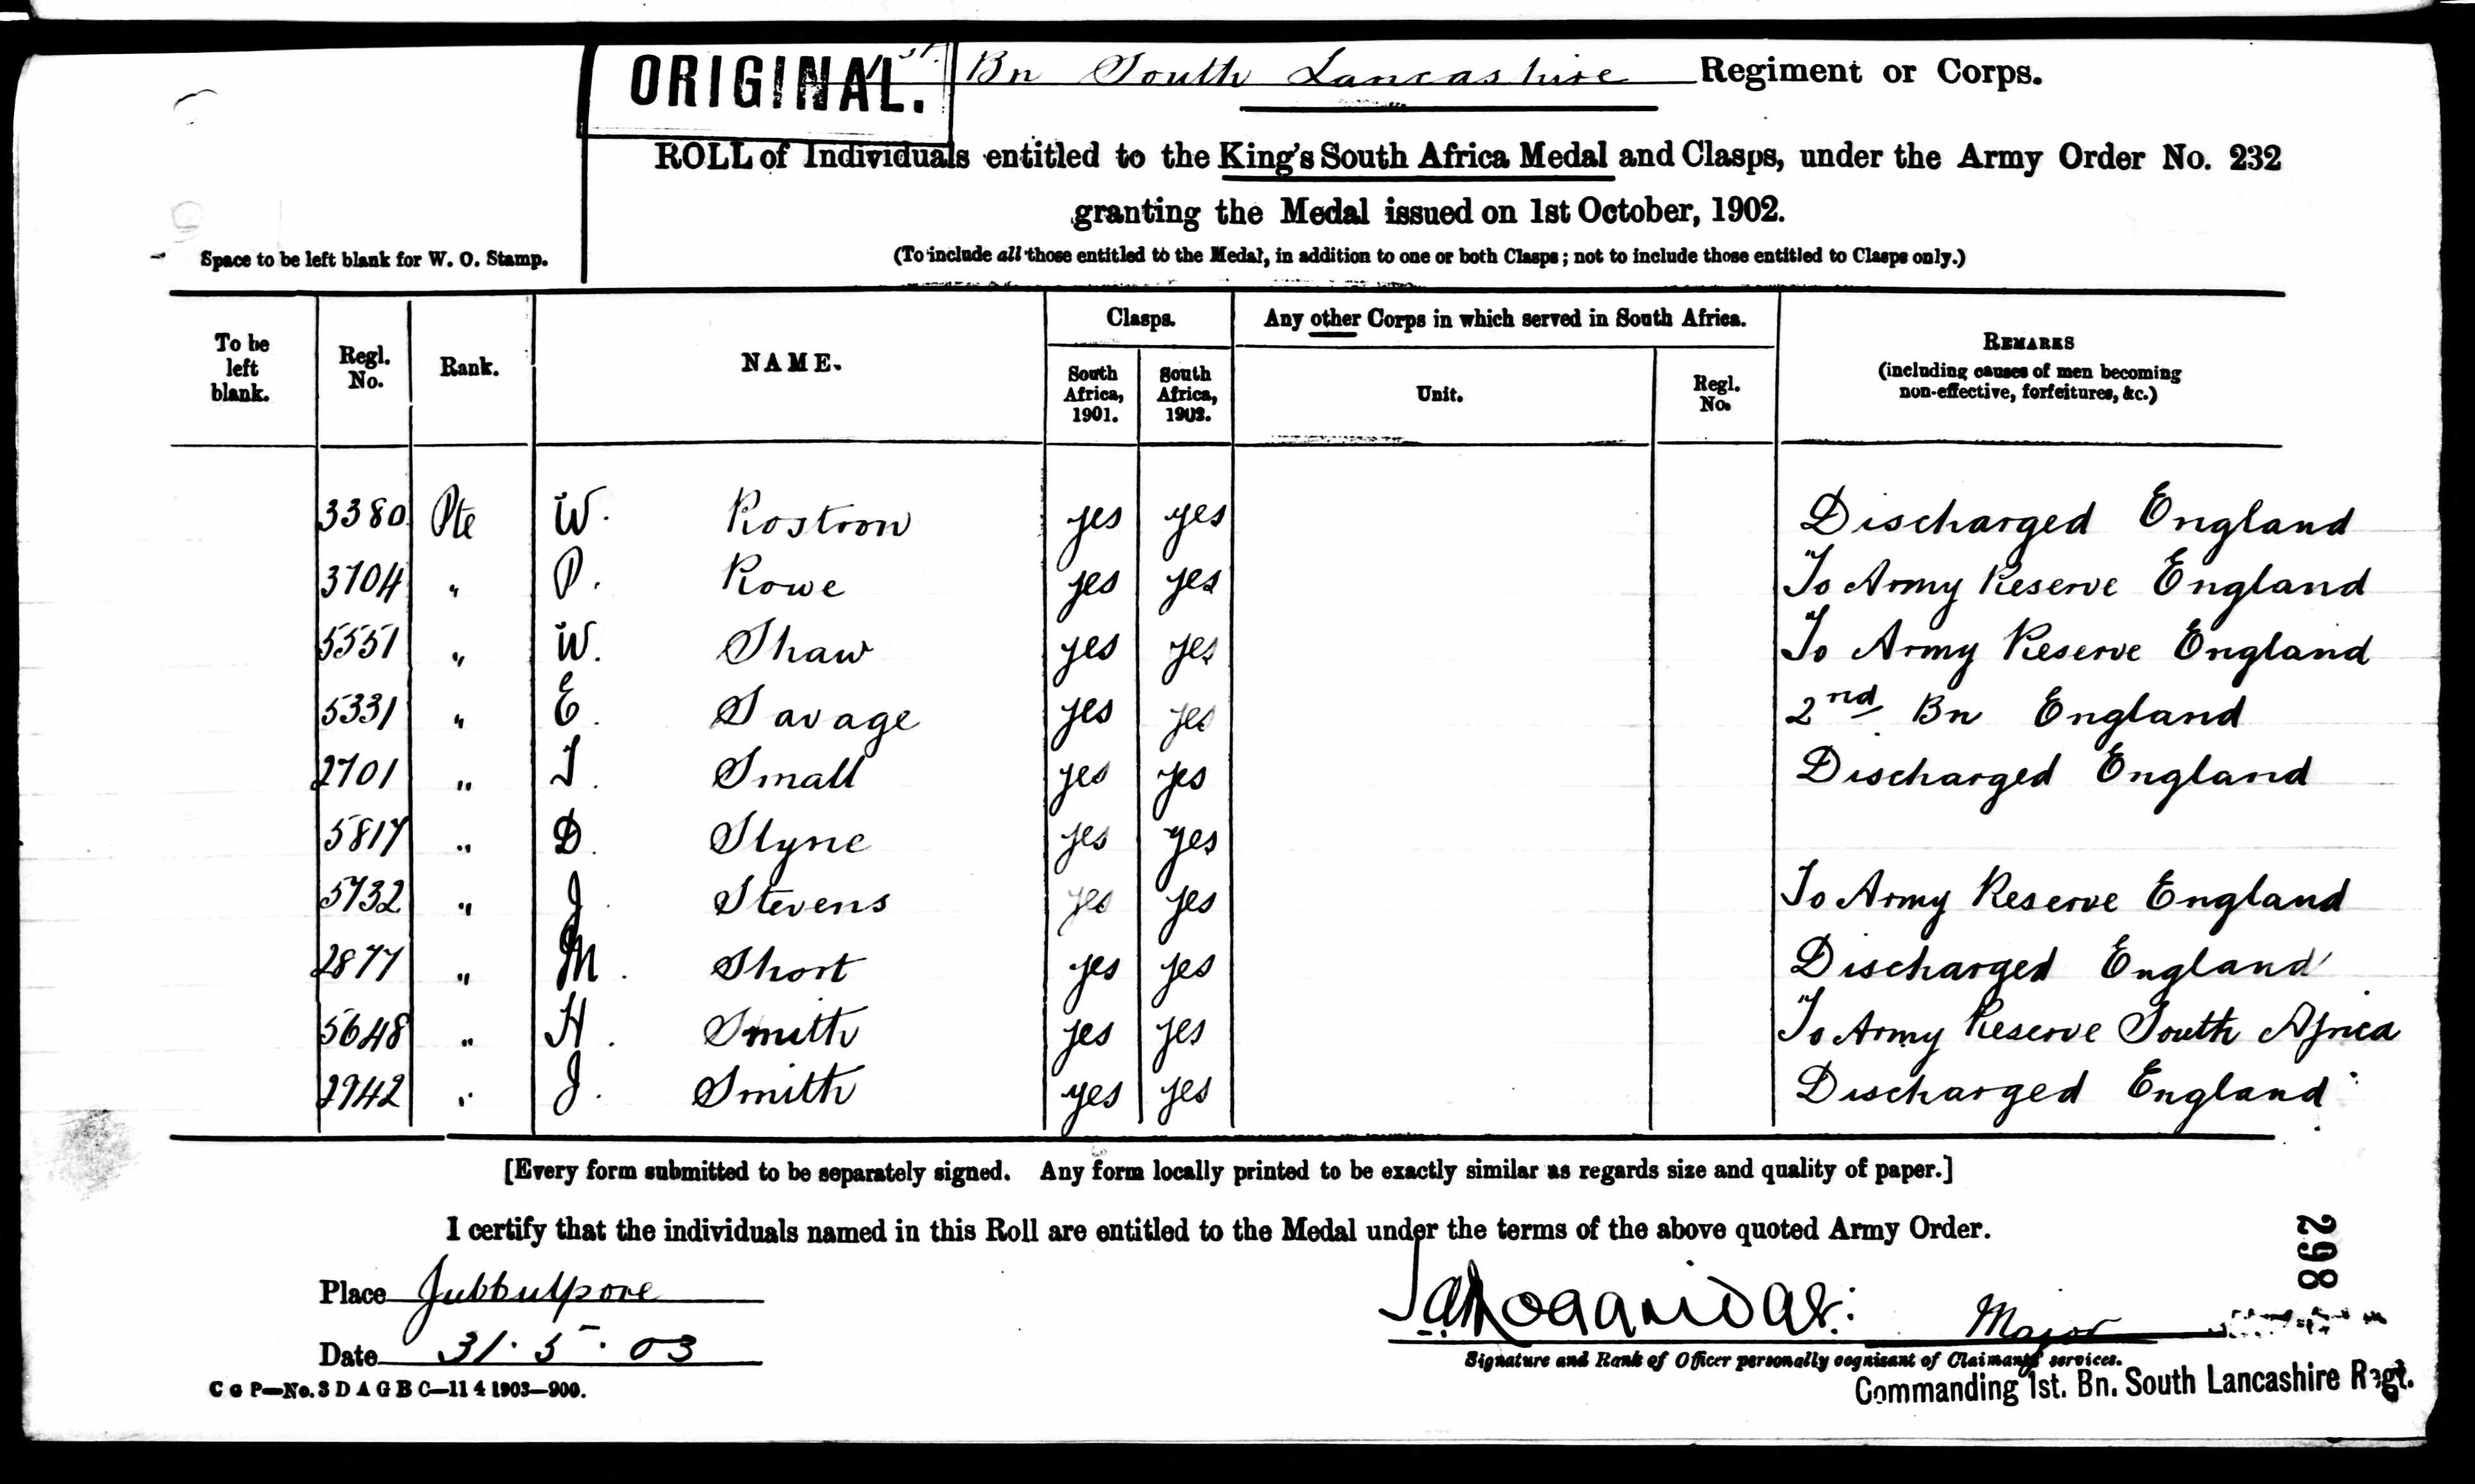 ORIGINAL.
1st. Bn South Lancashire Regiment or Corps.
ROLL of Individuals entitled to the King's South Africa Medal and Clasps, under the Army Order No. 232
granting the Medal issued on 1st October, 1902.
Space to be left blank for W. O. Stamp.
(To include all those entitled to the Medal, in addition to one or both Clasps; not to include those entitled to Clasps only.)
To be left blank. Regl. No. Rank. NAME. Clasps. South Africa, 1901. South Africa, 1902. Any other Corps in which served in South Africa. Unit. Regl. No. REMARKS (including causes of men becoming non-effective, forfeitures, &c.)
3380 Pte W. Rostron yes yes Discharged England
3704 " P. Rowe yes yes To Army Reserve England
5551 " W. Shaw yes yes To Army Reserve England
5331 " E. Savage yes yes 2nd Bn England
2701 " T. Small yes yes Discharged England
5817 " D. Slyne yes yes
5732 " J. Stevens yes yes To Army Reserve England
2877 " M. Short yes yes Discharged England
5648 " H. Smith yes yes To Army Reserve South Africa
2942 " J. Smith yes yes Discharged England
[Every form submitted to be separately signed. Any form locally printed to be exactly similar as regards size and quality of paper.]
I certify that the individuals named in this Roll are entitled to the Medal under the terms of the above quoted Army Order.
298
Place Jubbulpore
Major
Date 31.5.03
Signature and Rank of Officer personally cognisant of Claimants' services.
C G P—No. 3 D A G B C—11 4 1903—900.
Commanding 1st. Bn. South Lancashire Regt.